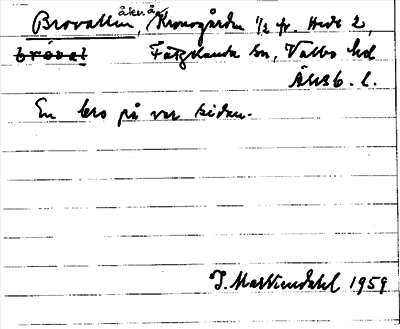 Brovallen, åker å Kronogården 1/2 fr. Hede 2,
bróval Färgelanda sn, Valbo hd
Älvsb. l.
En bro på var sidan.
J. Martendahl 1959